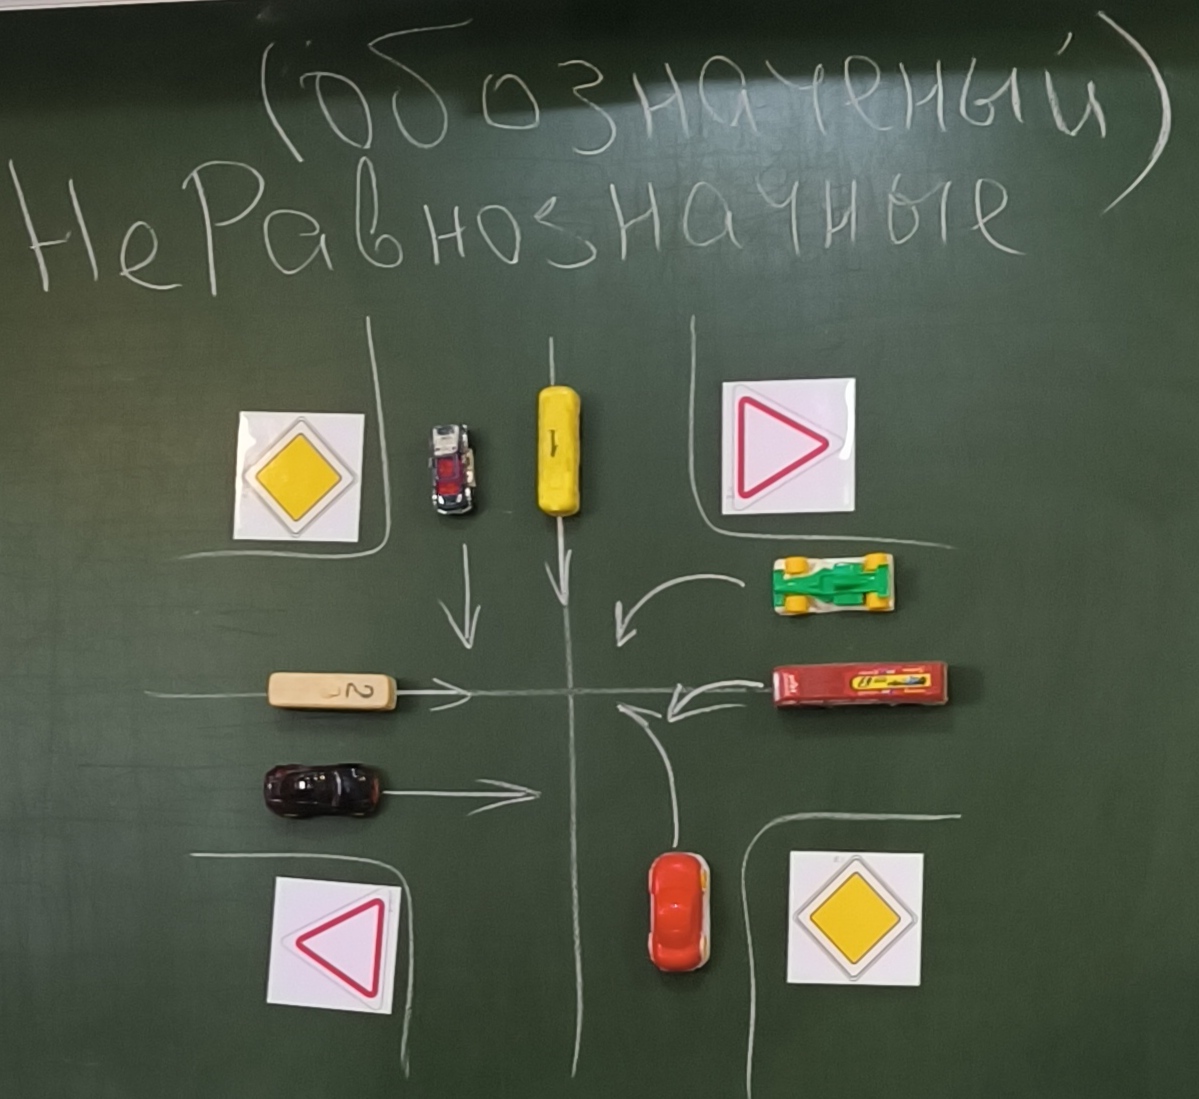 (обозначеный)
НеРавнозначные
1
2